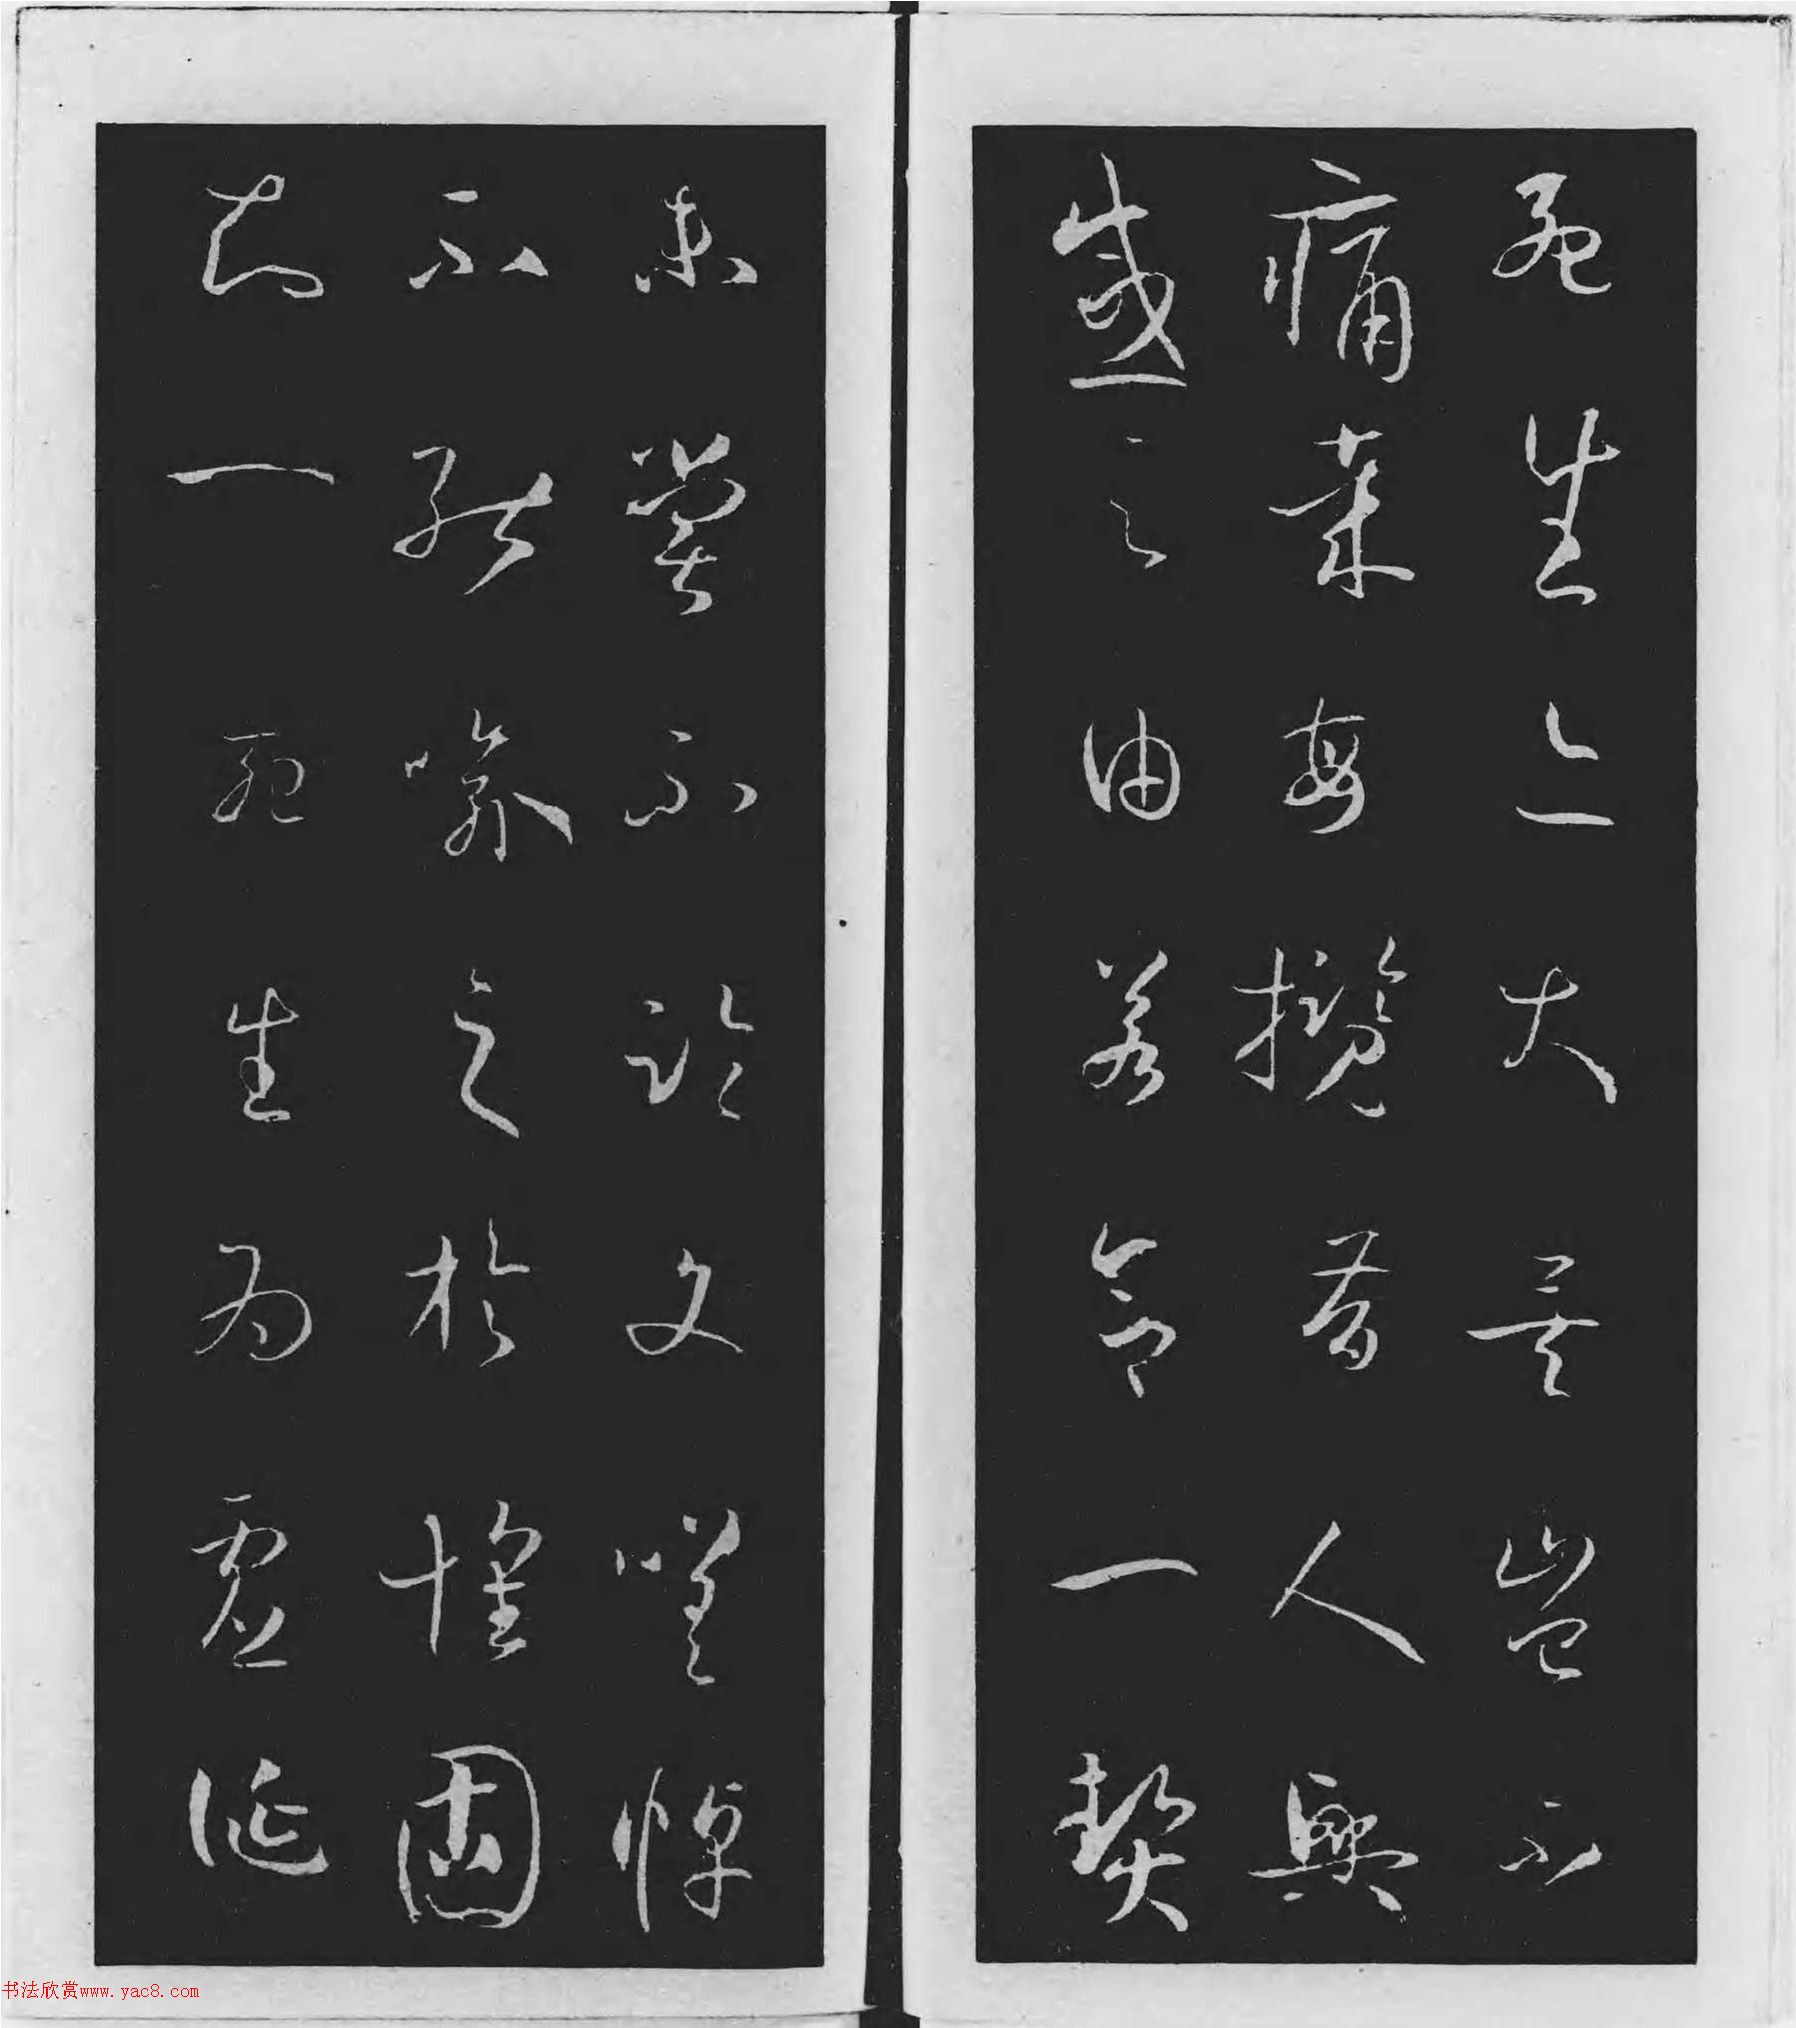 死生亦大矣豈不
痛哉每攬昔人興
感之由若合一契
未嘗不臨文嗟悼
不能喻之於懷固
知一死生為虛誕
书法欣赏www.yac8.com